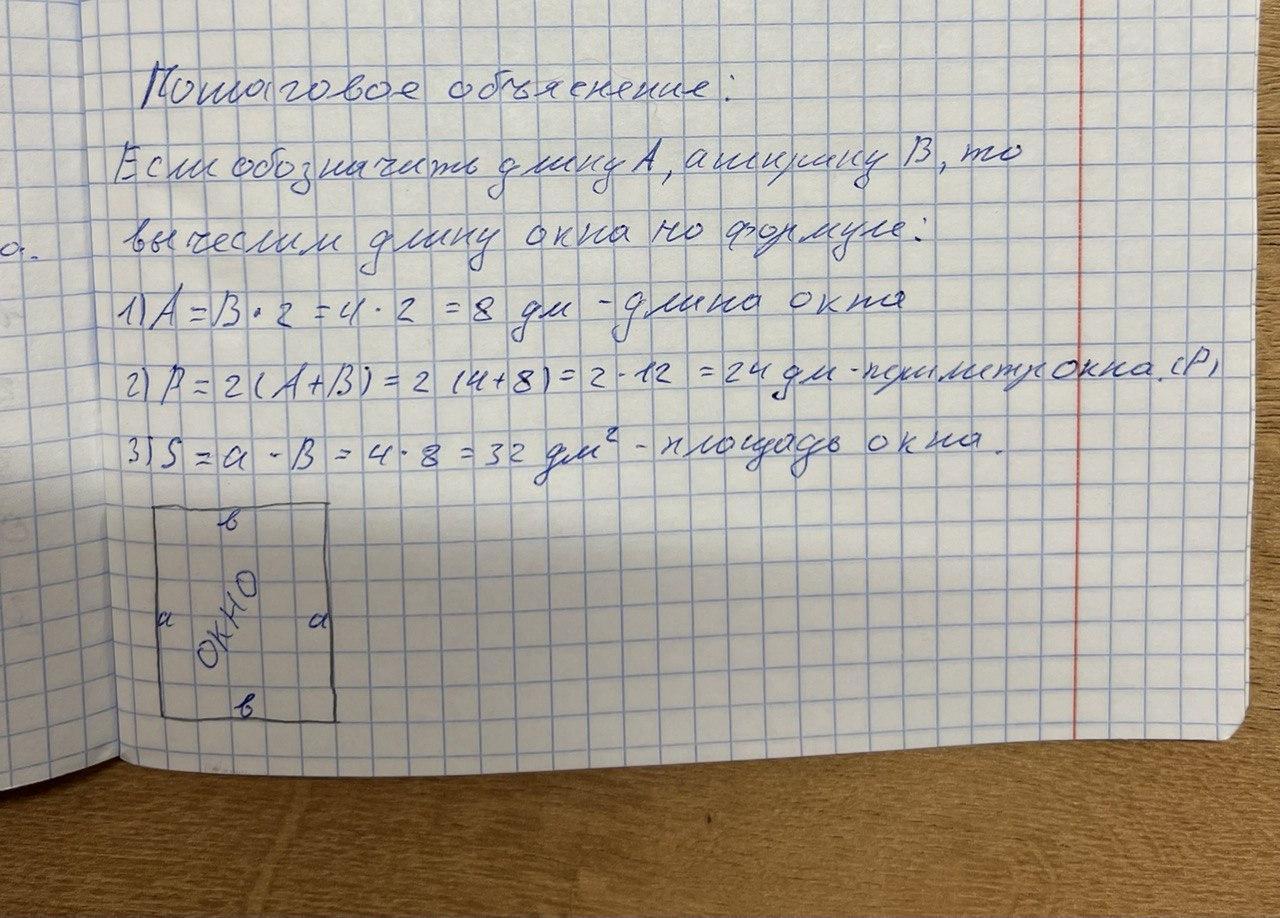 Пошаговое объяснение:
Если обозначить длину А, а ширину В, то
вычеслим длину окна по формуле:
а.
1) А = В · 2 = 4 · 2 = 8 дм - длина окна
2) Р = 2 (А + В) = 2 (4+8) = 2 · 12 = 24 дм - периметр окна. (Р)
3) S = а · В = 4 · 8 = 32 дм² - площадь окна.
в
а ОКНО а
в